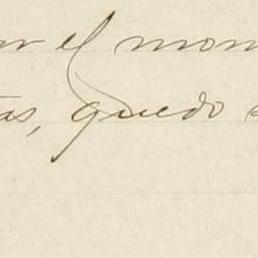 el mom
tas, quedo